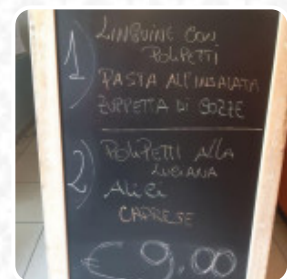 1) LINGUINE CON
POLIPETTI
PASTA ALL'INSALATA
ZUPPETTA DI COZZE
2) POLIPETTI ALLA
LUCIANA
Alici
CAPRESE
€ 9,00